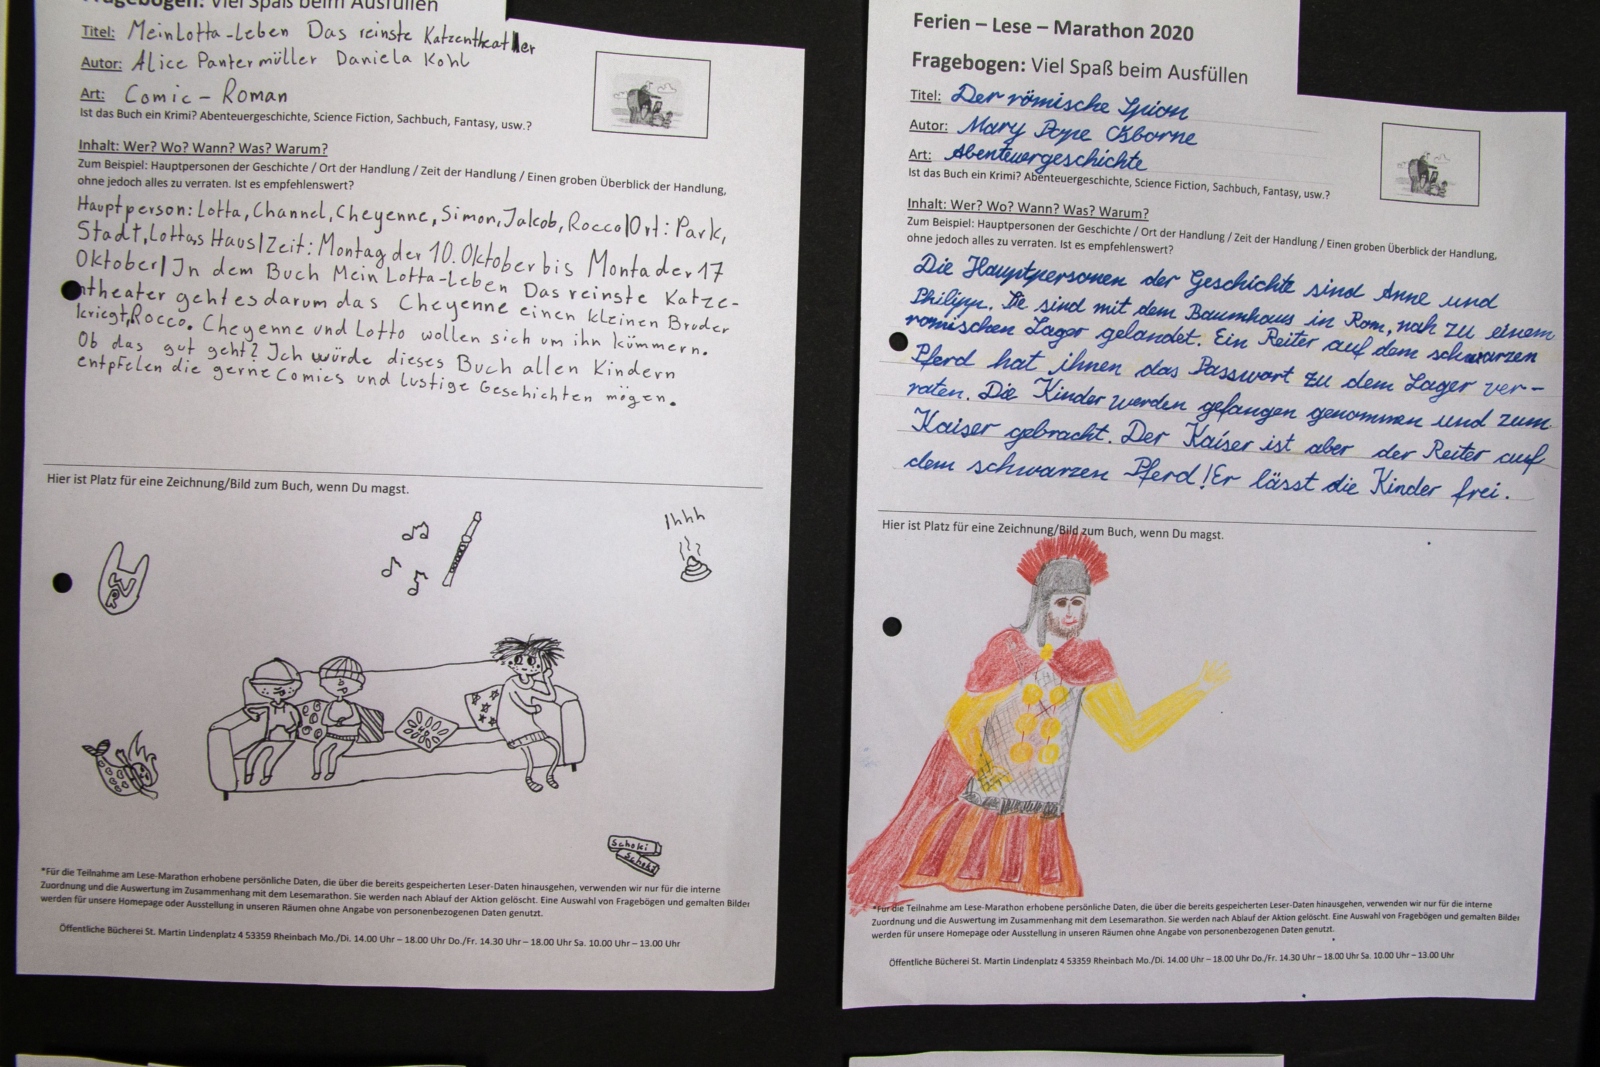 Fragebogen: Viel Spaß beim Ausfüllen
Titel: Mein Lotta-Leben Das reinste Katzentheather
Autor: Alice Pantermüller Daniela Kohl
Art: Comic - Roman
Ist das Buch ein Krimi? Abenteuergeschichte, Science Fiction, Sachbuch, Fantasy, usw.?
Inhalt: Wer? Wo? Wann? Was? Warum?
Zum Beispiel: Hauptpersonen der Geschichte / Ort der Handlung / Zeit der Handlung / Einen groben Überblick der Handlung,
ohne jedoch alles zu verraten. Ist es empfehlenswert?
Hauptperson: Lotta, Channel, Cheyenne, Simon, Jakob, Rocco|Ort: Park,
Stadt, Lottas Haus|Zeit: Montag der 10. Oktober bis Monta der 17
Oktober| In dem Buch Mein Lotta-Leben Das reinste Katze-
ntheater geht es darum das Cheyenne einen kleinen Bruder
kriegt, Rocco. Cheyenne und Lotto wollen sich um ihn kümmern.
Ob das gut geht? Ich würde dieses Buch allen Kindern
entpfelen die gerne Comics und lustige Geschichten mögen.
Hier ist Platz für eine Zeichnung/Bild zum Buch, wenn Du magst.
Ihhh
Schoki
Schoki
*Für die Teilnahme am Lese-Marathon erhobene persönliche Daten, die über die bereits gespeicherten Leser-Daten hinausgehen, verwenden wir nur für die interne
Zuordnung und die Auswertung im Zusammenhang mit dem Lesemarathon. Sie werden nach Ablauf der Aktion gelöscht. Eine Auswahl von Fragebögen und gemalten Bilder
werden für unsere Homepage oder Ausstellung in unseren Räumen ohne Angabe von personenbezogenen Daten genutzt.
Öffentliche Bücherei St. Martin Lindenplatz 4 53359 Rheinbach Mo./Di. 14.00 Uhr – 18.00 Uhr Do./Fr. 14.30 Uhr – 18.00 Uhr Sa. 10.00 Uhr – 13.00 Uhr
Ferien – Lese – Marathon 2020
Fragebogen: Viel Spaß beim Ausfüllen
Titel: Der römische Spion
Autor: Mary Pope Osborne
Art: Abenteuergeschichte
Ist das Buch ein Krimi? Abenteuergeschichte, Science Fiction, Sachbuch, Fantasy, usw.?
Inhalt: Wer? Wo? Wann? Was? Warum?
Zum Beispiel: Hauptpersonen der Geschichte / Ort der Handlung / Zeit der Handlung / Einen groben Überblick der Handlung,
ohne jedoch alles zu verraten. Ist es empfehlenswert?
Die Hauptpersonen der Geschichte sind Anne und
Philipp. Sie sind mit dem Baumhaus in Rom, nah zu einem
römischen Lager gelandet. Ein Reiter auf dem schwarzen
Pferd hat ihnen das Passwort zu dem Lager ver-
raten. Die Kinder werden gefangen genommen und zum
Kaiser gebracht. Der Kaiser ist aber der Reiter auf
dem schwarzen Pferd! Er lässt die Kinder frei.
Hier ist Platz für eine Zeichnung/Bild zum Buch, wenn Du magst.
*Für die Teilnahme am Lese-Marathon erhobene persönliche Daten, die über die bereits gespeicherten Leser-Daten hinausgehen, verwenden wir nur für die interne
Zuordnung und die Auswertung im Zusammenhang mit dem Lesemarathon. Sie werden nach Ablauf der Aktion gelöscht. Eine Auswahl von Fragebögen und gemalten Bilder
werden für unsere Homepage oder Ausstellung in unseren Räumen ohne Angabe von personenbezogenen Daten genutzt.
Öffentliche Bücherei St. Martin Lindenplatz 4 53359 Rheinbach Mo./Di. 14.00 Uhr – 18.00 Uhr Do./Fr. 14.30 Uhr – 18.00 Uhr Sa. 10.00 Uhr – 13.00 Uhr